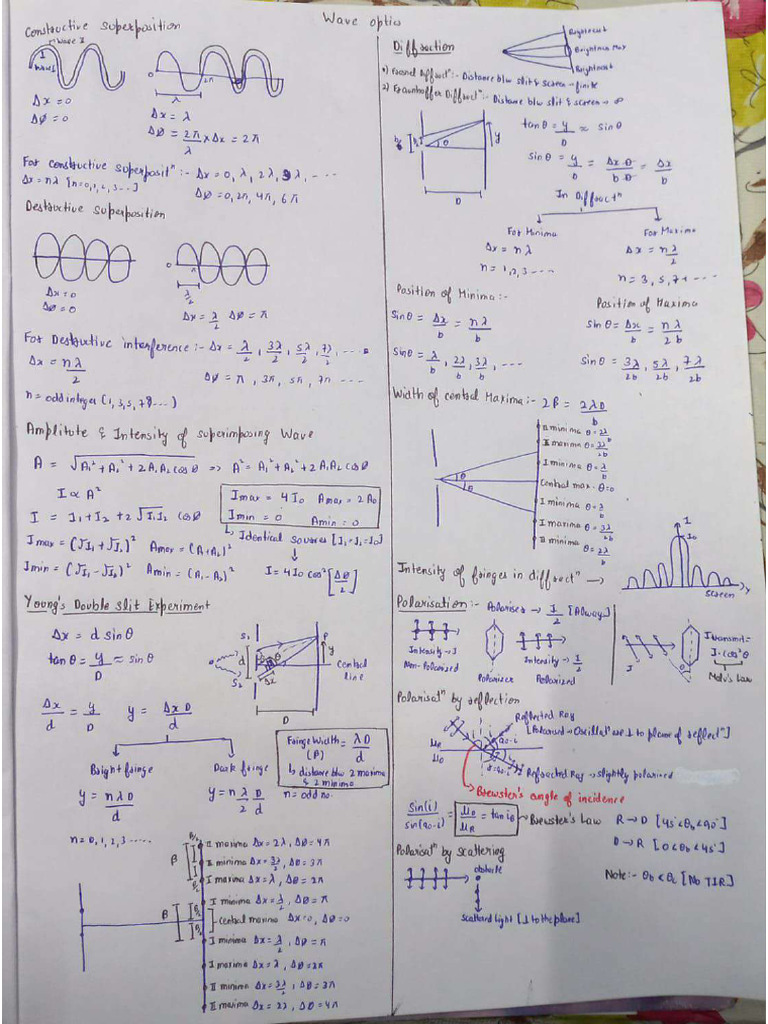 Wave optics
Constructive superposition
wave 2
I
wave 1
Δx = 0
Δø = 0
0
2π
λ
Δx = λ
Δø = 2π/λ × Δx = 2π
For constructive superpositⁿ :- Δx = 0, λ, 2λ, 3λ, ....
Δx = nλ [n=0,1,2,3...]
Δø = 0, 2π, 4π, 6π
Destructive superposition
Δx = 0
Δø = 0
0
π
λ/2
Δx = λ/2 Δø = π
For Destructive interference :- Δx = λ/2, 3λ/2, 5λ/2, 7λ/2, ....
Δx = nλ/2
Δø = π, 3π, 5π, 7π ....
n = odd integer (1, 3, 5, 7....)
Amplitute & Intensity of superimposing Wave
A = √A₁² + A₂² + 2A₁A₂ cosø => A² = A₁² + A₂² + 2A₁A₂ cosø
I ∝ A²
I = I₁ + I₂ + 2√I₁I₂ cosø
Imax = 4I₀ Amax = 2A₀
Imin = 0 Amin = 0
↳ Identical sources [I₁=I₂=I₀]
Imax = (√I₁+√I₂)² Amax = (A₁+A₂)²
Imin = (√I₁-√I₂)² Amin = (A₁-A₂)²
I = 4I₀ cos² [Δø/2]
Young's Double slit Experiment
Δx = d sinθ
tanθ = y/D ≈ sinθ
S₁
S₂
d
θ
Δx
P
y
Central line
D
Δx/d = y/D y = Δx D/d
Bright fringe
y = nλD/d
n = 0, 1, 2, 3 ....
Dark fringe
y = n λ/2 D/d
n = odd no.
Fringe Width (β) = λD/d
↳ distance b/w 2 maxima & 2 minima
β
β/2
II maxima Δx = 2λ, Δø = 4π
II minima Δx = 3λ/2, Δø = 3π
I maxima Δx = λ, Δø = 2π
I minima Δx = λ/2, Δø = π
Central maxima Δx = 0, Δø = 0
I minima Δx = λ/2, Δø = π
I maxima Δx = λ, Δø = 2π
II minima Δx = 3λ/2, Δø = 3π
II maxima Δx = 2λ, Δø = 4π
Diffraction
Brightness↓
Brightness Max
Brightness↓
1) Fresnel Diffractⁿ :- Distance b/w slit & screen → finite
2) Fraunhoffer Diffractⁿ :- Distance b/w slit & screen → ∞
b
θ
y
D
tanθ = y/D ≈ sinθ
sinθ = y/D = Δx D/b D = Δx/b
In Diffractⁿ
For Minima
Δx = nλ
n = 1, 2, 3 ....
For Maxima
Δx = nλ/2
n = 3, 5, 7 ....
Position of Minima :-
Sinθ = Δx/b = nλ/b
Sinθ = λ/b, 2λ/b, 3λ/b, ....
Position of Maxima
Sinθ = Δx/b = nλ/2b
Sinθ = 3λ/2b, 5λ/2b, 7λ/2b
Width of central Maxima :- 2β = 2λD/b
II minima θ = 2λ/b
II maxima θ = 3λ/2b
I minima θ = λ/b
Central max. θ = 0
I minima θ = λ/b
I maxima θ = 3λ/2b
II minima θ = 2λ/b
θ
θ
Intensity of fringes in diffractⁿ →
I
I₀
y
screen
Polarisation :- Polariser → I/2 [Always]
Intensity → I
Non-Polarized
Polarizer
Intensity → I/2
Polarized
I
θ
I transmit = I·cos²θ
Malus Law
Polarisatⁿ by reflection
Reflected Ray
[Polarised → Oscillatⁿ are ⊥ to plane of reflectⁿ]
μR
μD
i
i
90-i
Refracted Ray → slightly polarized
Brewster's angle of incidence
sin(i)/sin(90-i) = μD/μR = tan iθ → Brewster's Law
R → D [45° < θb < 90°]
D → R [0 < θb < 45°]
Note :- θb < θc [No TIR]
Polarisatⁿ by scattering
obstacle
Scattered light [⊥ to the plane]